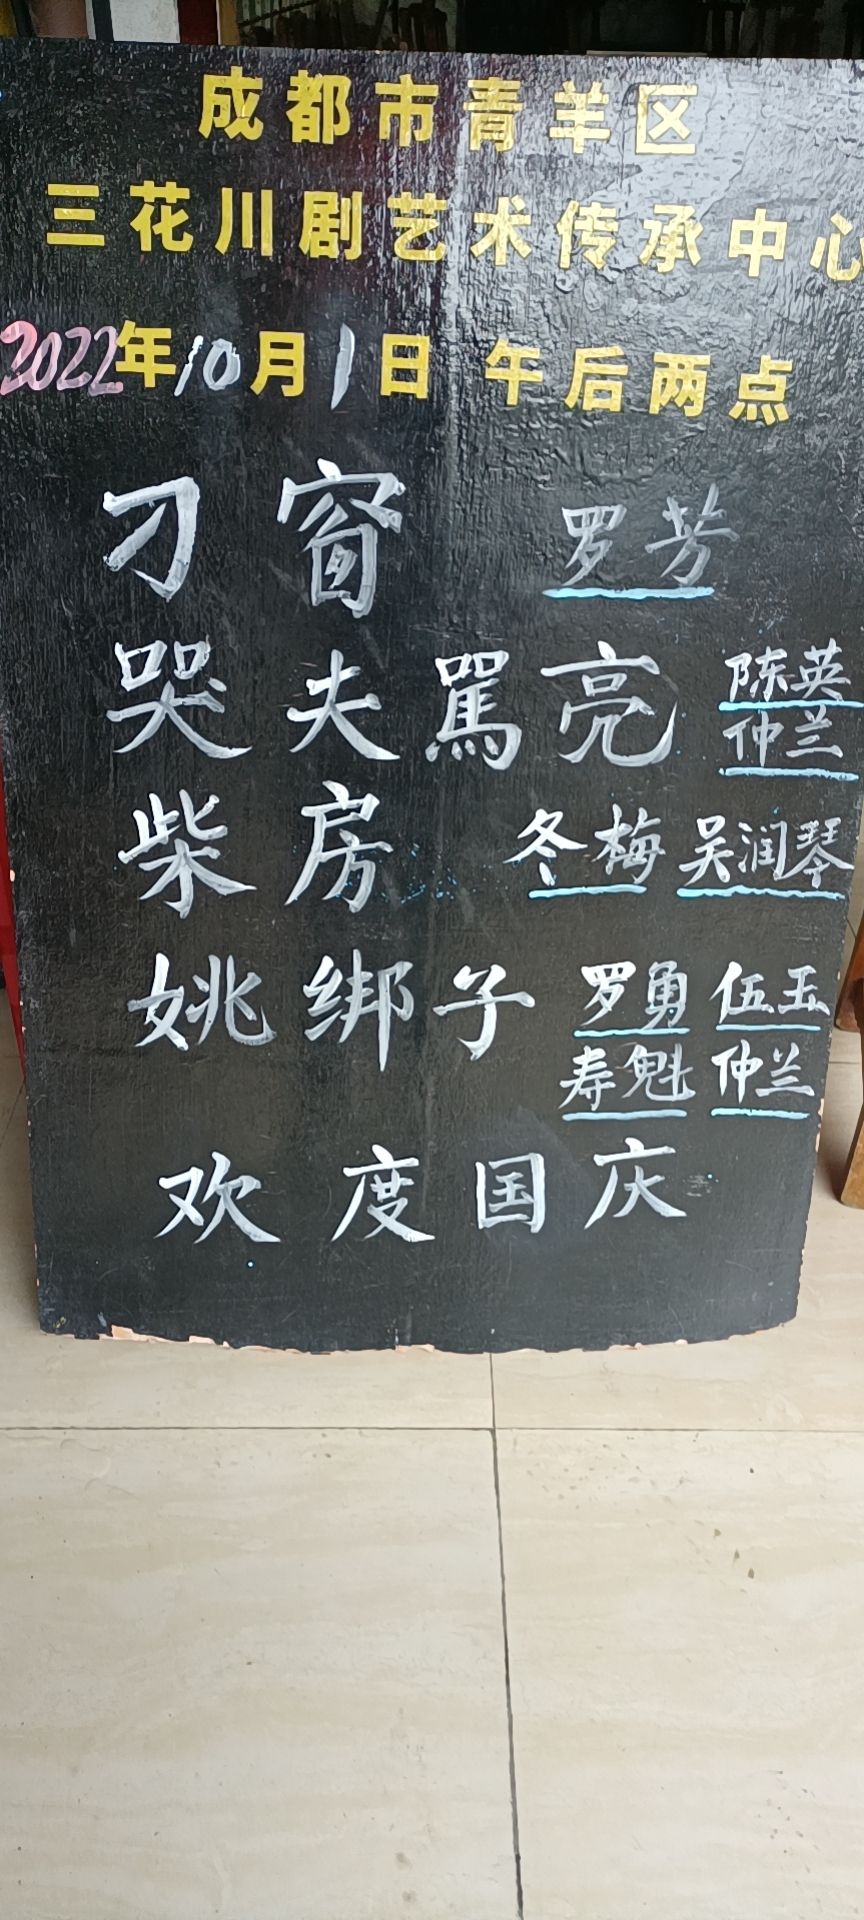 成都市青羊区
三花川剧艺术传承中心
2022年10月1日 午后两点
刁窗 罗芳
哭夫骂亮 陈英
仲兰
柴房 冬梅 吴润琴
姚绑子 罗勇 伍玉
寿魁 仲兰
欢度国庆